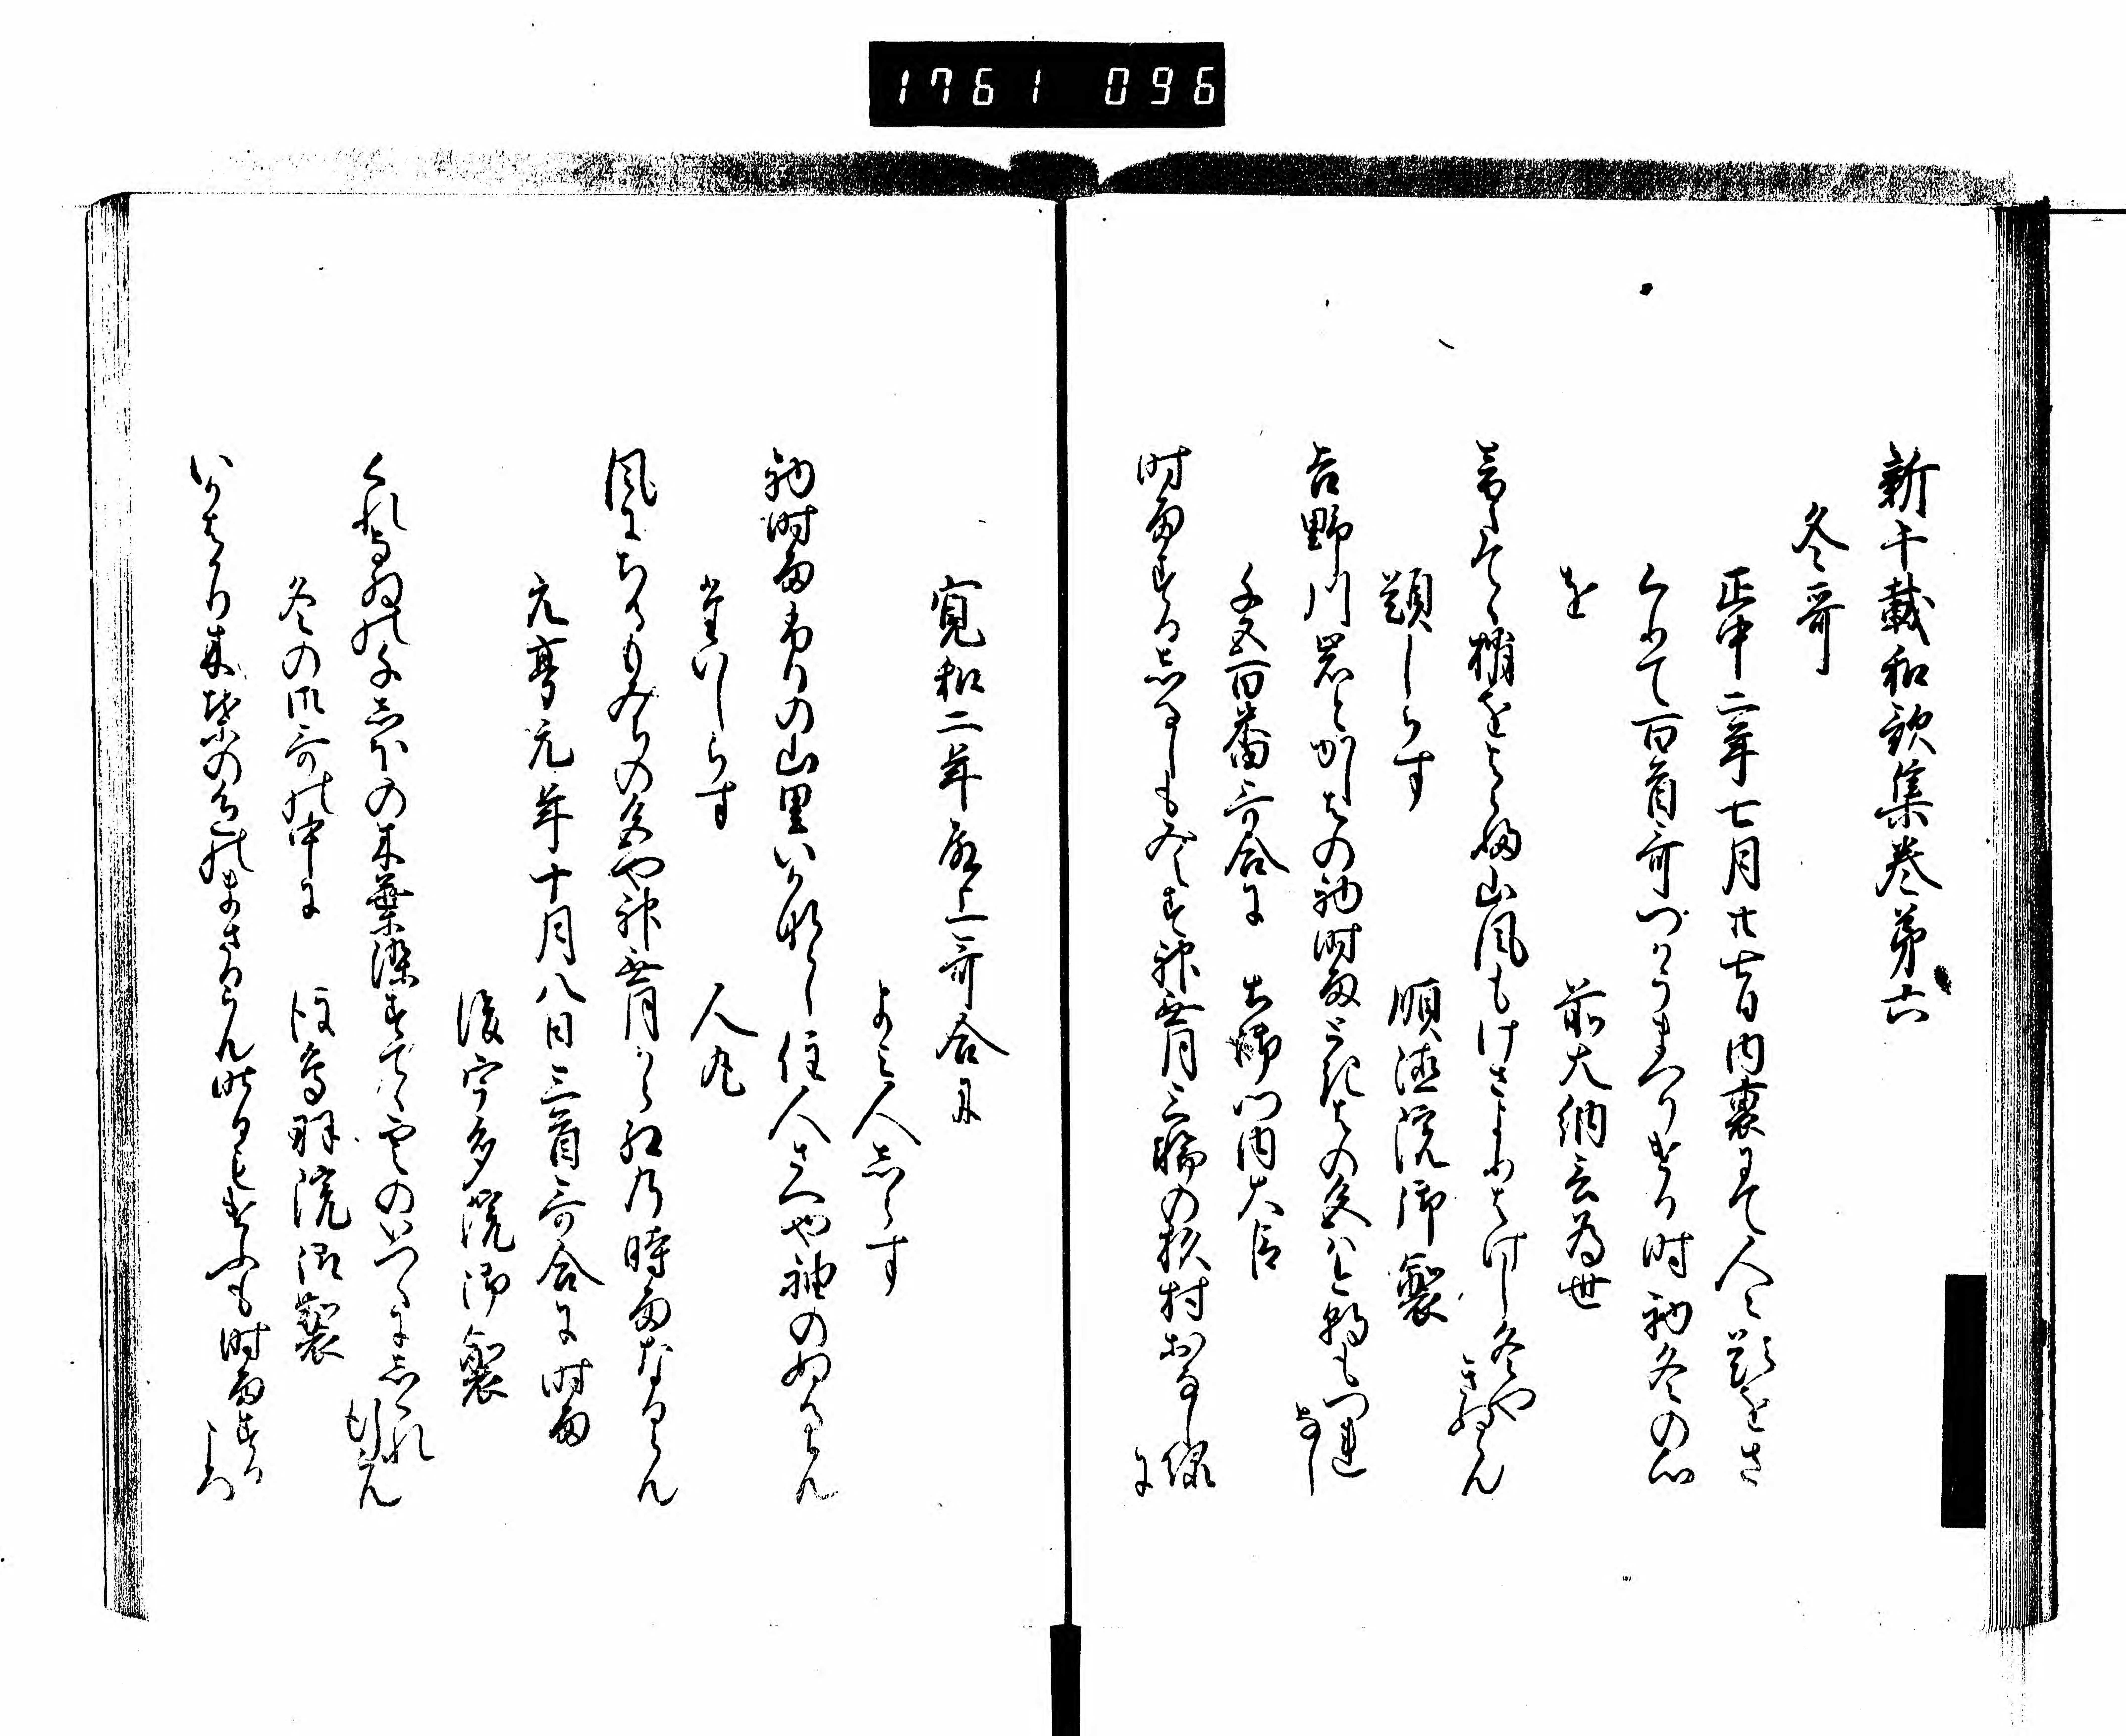 1761 096
新千載和歌集巻第六
冬哥
正中二年七月廿七日内裏にて人〻題をさ
くりて百首哥つかうまつりける時初冬の心
を
前大納言為世
音たてゝ梢をはらふ山風もけさよりはけしき冬や
きぬらん
題しらす
順徳院御製
吉野川岩とかしはの初時雨ときはの色は今朝もつれ
なし
千五百番哥合に
土御門内大臣
時雨するしるしも冬そ神無月三輪の杉村おなし緑
に
寛和二年殿上哥合に
よみ人しらす
初時雨ふりの山里いかならし住人さへや袖のぬるらん
題しらす
人丸
風にちるもみちの色や神無月から紅の時雨なるらん
元亨元年十月八日三首哥合に時雨
後宇多院御製
くれなゐの千しほの木葉染すてゝ雲のいつくにしくれ
行らん
冬の御哥の中に
後鳥羽院御製
いかはかり木葉の色のまさるらん昨日もけふも時雨する
ころ